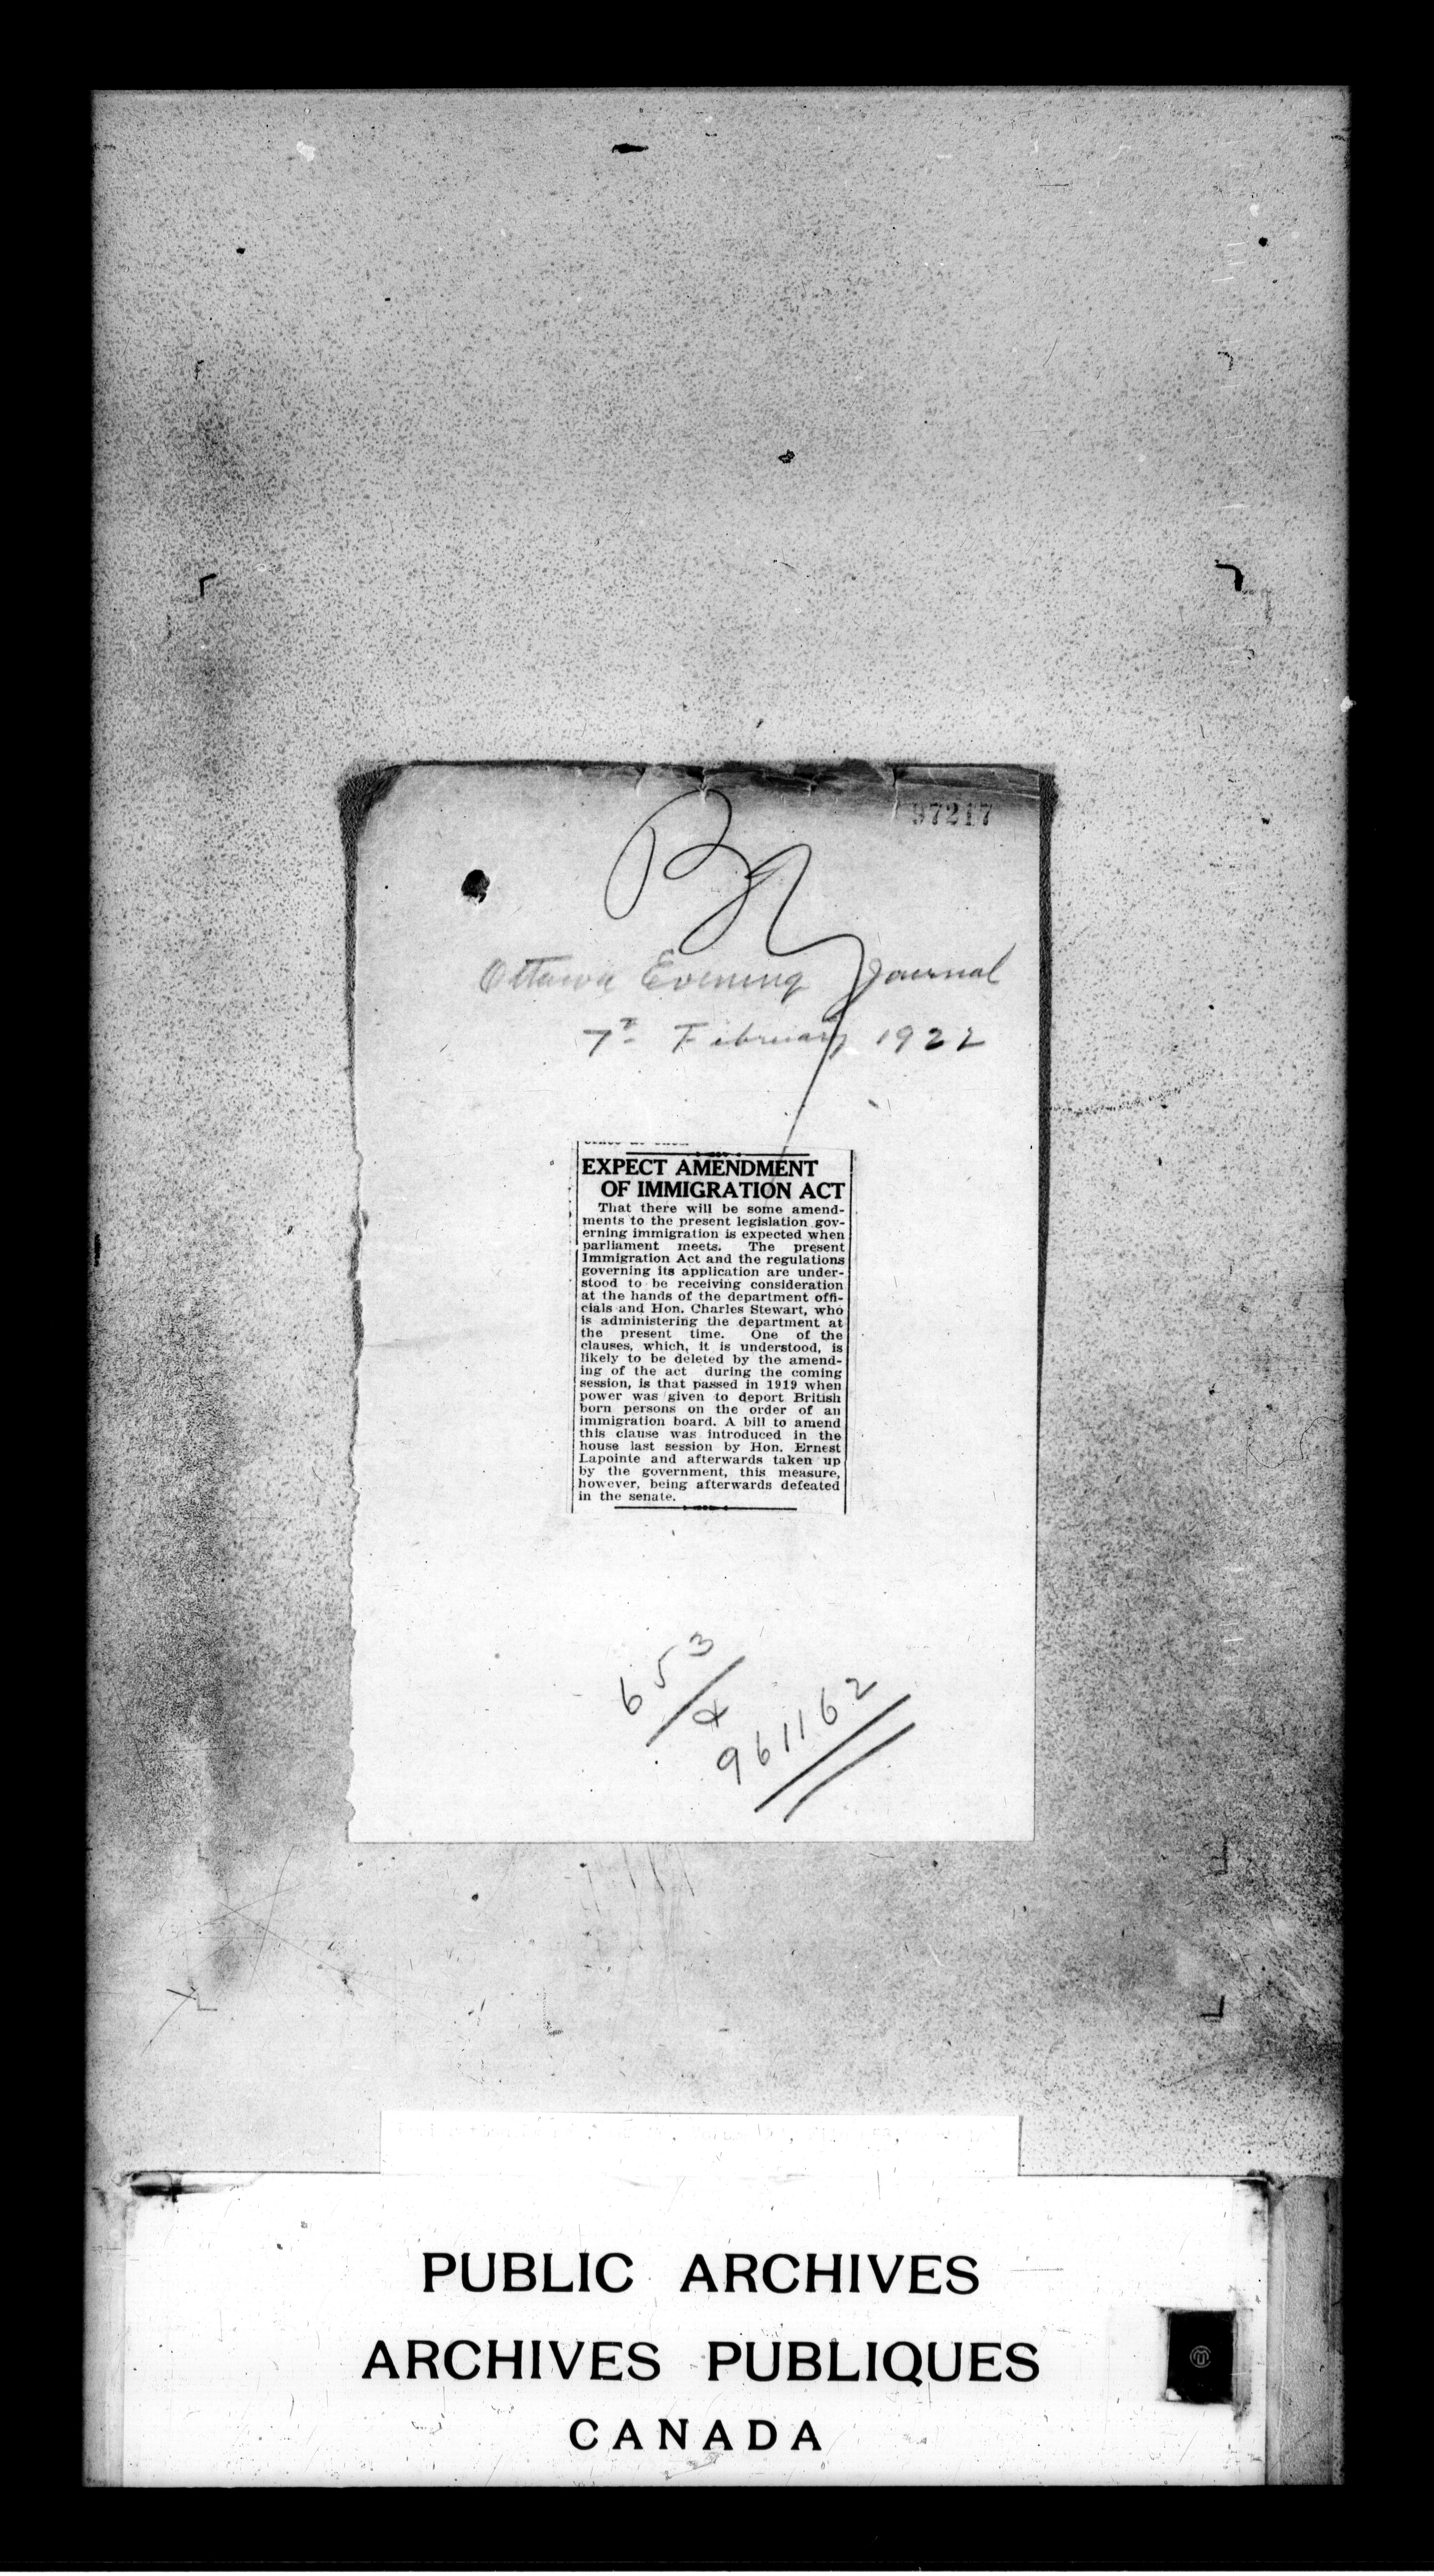 97217
Ottawa Evening Journal
7th February 1922
EXPECT AMENDMENT
OF IMMIGRATION ACT
That there will be some amend-
ments to the present legislation gov-
erning immigration is expected when
parliament meets. The present
Immigration Act and the regulations
governing its application are under-
stood to be receiving consideration
at the hands of the department offi-
cials and Hon. Charles Stewart, who
is administering the department at
the present time. One of the
clauses, which, it is understood, is
likely to be deleted by the amend-
ing of the act during the coming
session, is that passed in 1919 when
power was given to deport British
born persons on the order of an
immigration board. A bill to amend
this clause was introduced in the
house last session by Hon. Ernest
Lapointe and afterwards taken up
by the government, this measure,
however, being afterwards defeated
in the senate.
653
961162
PUBLIC ARCHIVES
ARCHIVES PUBLIQUES
CANADA